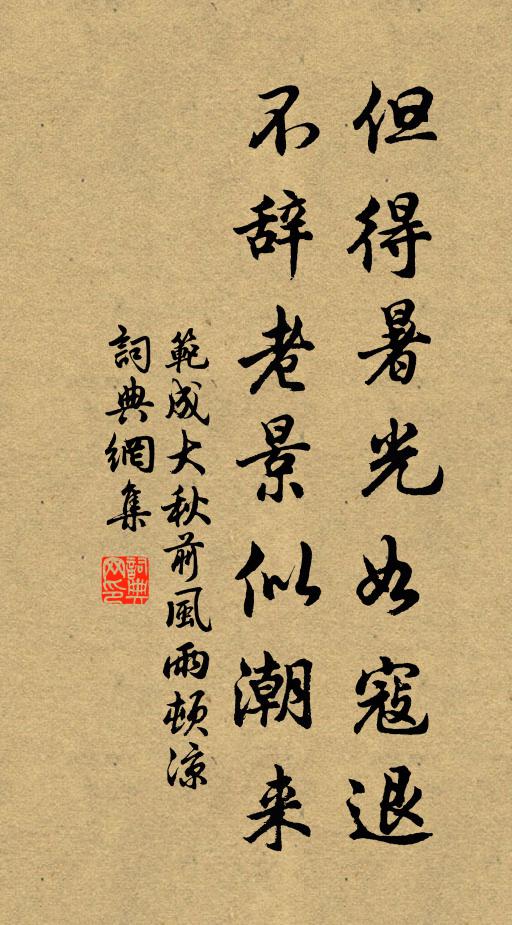 但得暑光如寇退
不辞老景似潮来
範成大秋前風雨頓涼
詞典網集
詞典網印